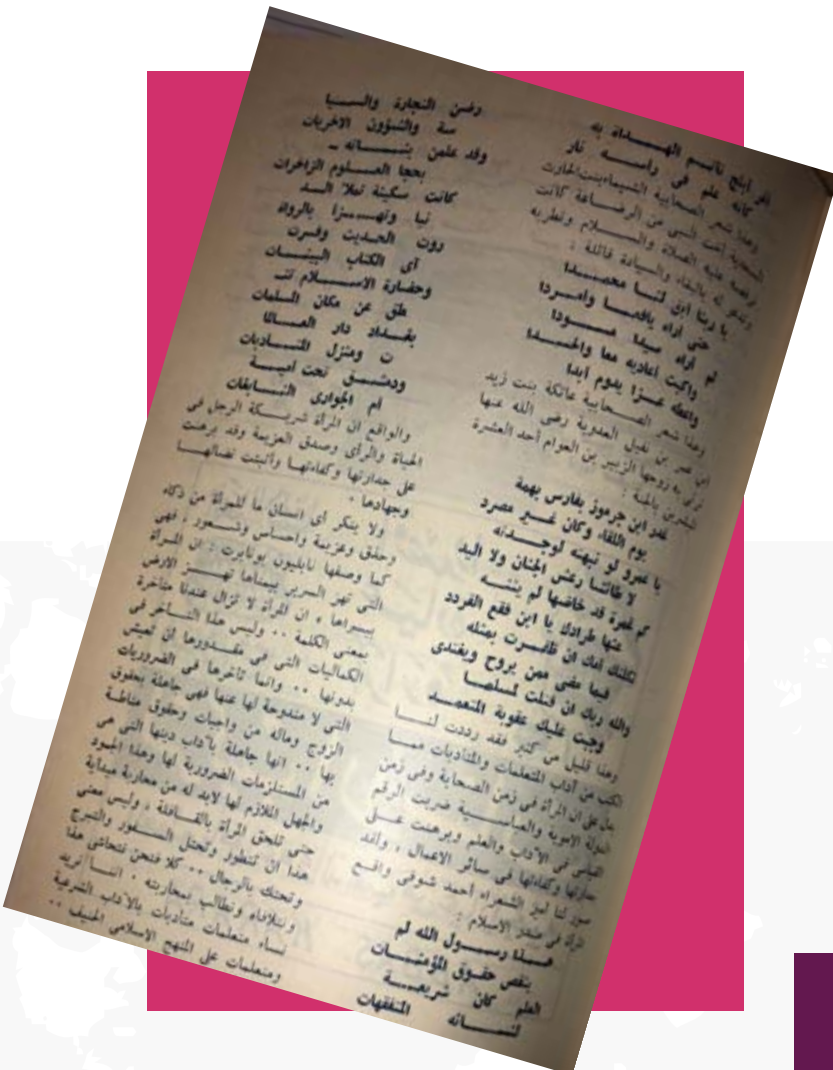 أغر أبلج تأتم الهـــداة به
كأنه علم في رأســـه نار
وهذا شعر الصحابية الشيماء بنت الحارث
السعدية أخت النبي من الرضاعة كانت
ترقصه عليه الصلاة والســـلام وتطريه
وتدعو له بالبقاء والسيادة قائلة :
يا ربنا أبق لنــا محمــــدا
حتى أراه يافعـــا وأمـــردا
ثم أراه سيدا مســـودا
واكبت أعاديه معا والحسدا
وأعطه عـــزا يدوم أبدا
وهذا شعر الصـــحابية عاتكة بنت زيد
ابن عمر بن نفيل العدوية رضى الله عنها
ترثي به زوجها الزبير بن العوام أحد العشرة
المبشرين بالجنة :
غدر ابن جرموز بفارس بهمة
يوم اللقاء وكان غـــير معرد
يا عمرو لو نبهته لوجـــدته
لا طائشا رعش الجنان ولا اليد
كم غمرة قد خاضها لم يثنـــه
عنها طرادك يا ابن فقع القردد
ثكلتك أمك ان ظفـــرت بمثله
فيما مضى ممن يروح ويغتدى
والله ربك ان قتلت لمسلمـــا
وجبت عليك عقوبة المتعمـــد
وهذا قليل من كثير فقد رددت لنـــا
الكتب من آداب المتعلمات والمتأدبات ممـــا
يدل على ان المرأة في زمن الصحابة وفي زمن
الدولة الاموية والعباســـية ضربت الرقم
القياسى في الآداب والعلم وبرهنت عـــلى
جدارتها وكفاءتها في سائر الاعمال ، ولقد
صور لنا أمير الشعراء أحمد شوقى واقـــع
المرأة في صدر الاسلام :
هـــذا رســـول الله لم
ينقص حقـــوق المؤمنـــات
العلم كان شريعـــة
لنســـائه المتفقهات
رضن التجارة والســـيا
سة والشؤون الاخريات
وقد علمن بنـــــاته ـ
بحجا العـــلوم الزاخرات
كانت سكينة تملأ الـــد
نيا وتهـــــزأ بالرواة
روت الحـــديث وفسرت
آى الكتاب البينـــات
وحضارة الاســـلام تنـ
طق عن مكان المسلمات
بغـــداد دار العـــالما
ت ومنزل المتـــأدبات
ودمشـــق تحت أميـــة
أم الجوارى النـــابغات
والواقع ان المرأة شريـــكة الرجل في
الحياة والرأى وصدق العزيمة وقد برهنت
على جدارتها وكفاءتهـــا وأثبتت نضالهـــا
وجهادها ·
ولا ينكر أى انسان ما للمرأة من ذكاء
وحذق وعزيمة واحساس وشعـــور ، فهى
كما وصفها نابليون بونابرت : ان المرأة
التى تهز السرير بيمناها تهـــز الارض
بيسراها ، ان المرأة لا تزال عندنا متأخرة
بمعنى الكلمة ·· وليس هذا التـــأخر في
الكماليات التى في مقـــدورها ان تعيش
بدونها ·· وانما تأخرها في الضروريات
التى لا مندوحة لها عنها فهى جاهلة بحقوق
الزوج وماله من واجبات وحقوق مناطة
بها ·· انها جاهلة بآداب دينها التى هى
من المستلزمات الضرورية لها وهذا الجمود
والجهل الملازم لها لابد له من محاربة مبدأية
حتى تلحق المرأة بالقـــافلة ، وليس معنى
هذا ان تتطور وتحتل الســـفور والتبرج
وتحتك بالرجال ·· كلا فنحن نتحاشى هذا
ونتلافاه ونطالب بمحاربته · اننـــا نريد
نساء متعلمات متأدبات بالآداب الشرعية
ومتعلمات على المنهج الاسلامى الحنيف ··